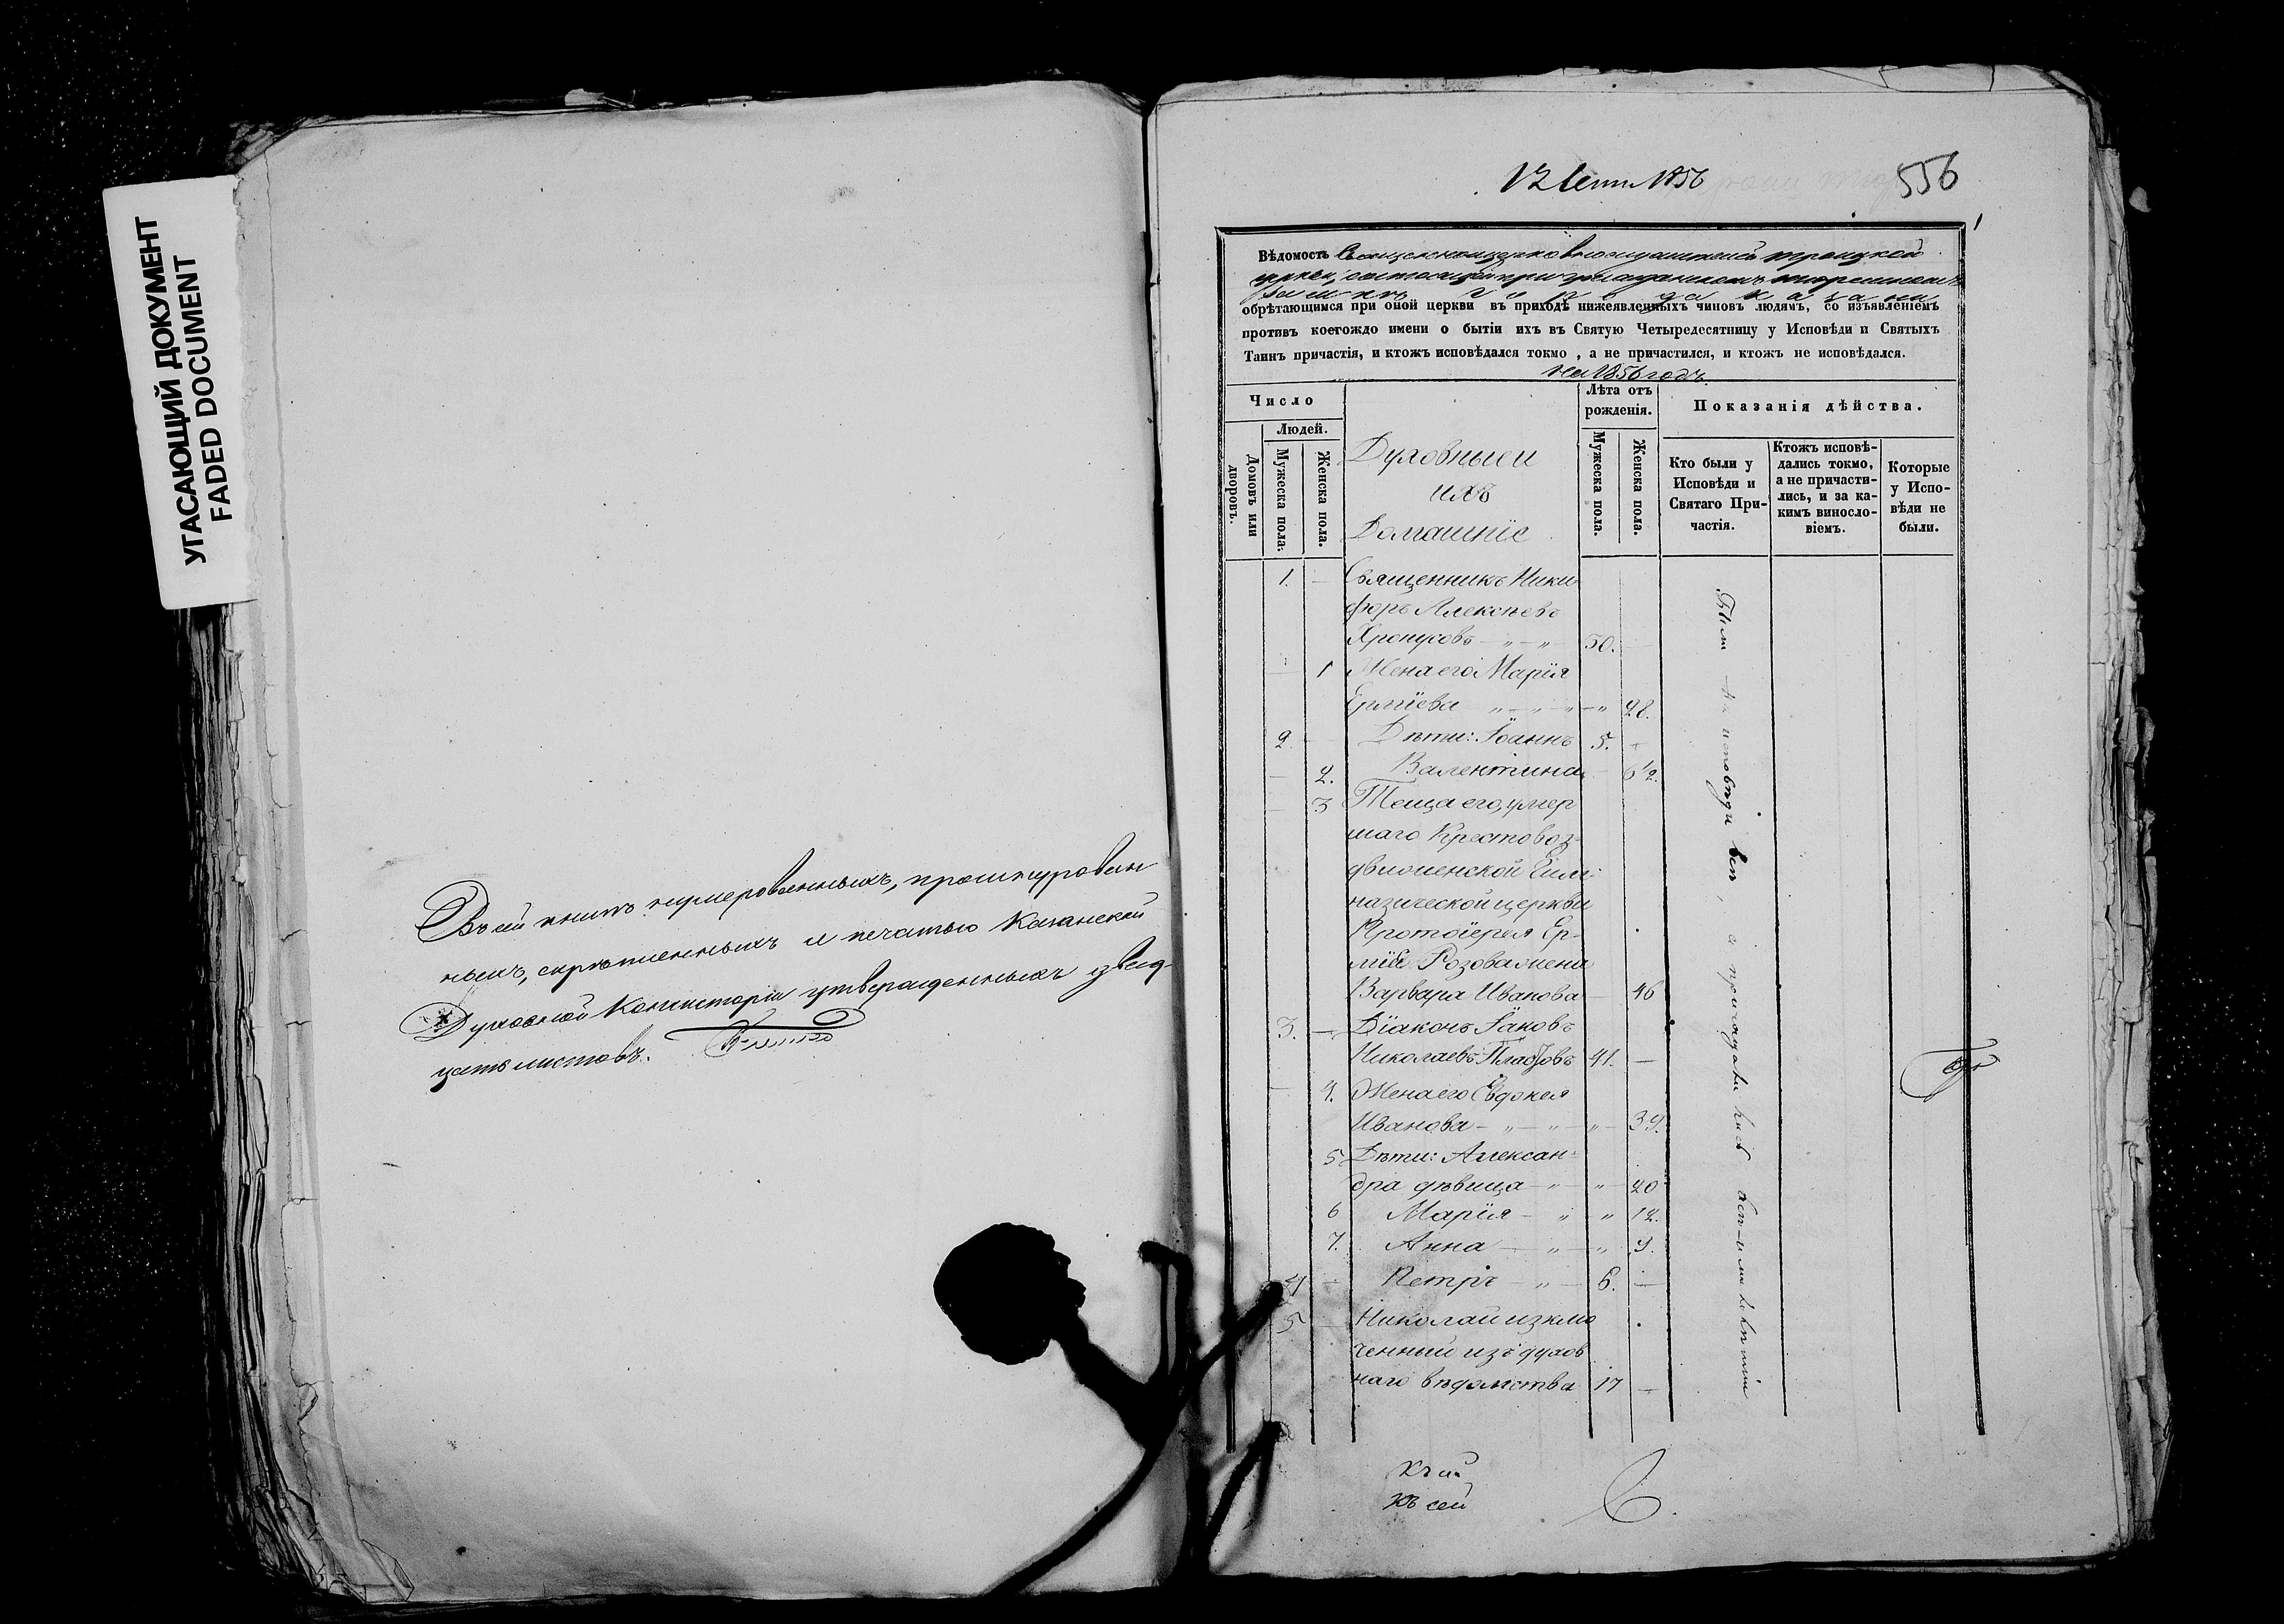 УГАСАЮЩИЙ ДОКУМЕНТ
FADED DOCUMENT
Въ сей книгѣ нумерованныхъ, прошнурован
ныхъ, скрѣпленныхъ и печатью Казанской
Духовной Консисторіи утвержденныхъ
цать листовъ.
12 Сент. 1856
556
1
Вѣдомость Троицкой
церкви, состоящей при
города Казани
обрѣтающимся при оной церкви въ приходѣ нижеявленныхъ чиновъ людямъ, со изъявленіемъ
противъ коегождо имени о бытіи ихъ въ Святую Четыредесятницу у Исповѣди и Святыхъ
Таинъ причастія, и ктожъ исповѣдался токмо, а не причастился, и ктожъ не исповѣдался.
на 1856 годъ.
Число
Людей.
Домовъ или дворовъ.
Мужеска пола.
Женска пола.
Духовные и
ихъ
Домашніе
Лѣта отъ рожденія.
Мужеска пола.
Женска пола.
Показанія дѣйства.
Кто были у Исповѣди и Святаго При-частія.
Ктожъ исповѣ-дались токмо, а не причасти-лись, и за ка-кимъ винослo-віемъ.
Которые у Испо-вѣди не были.
1. — Священникъ Ники
форъ Алексѣевъ
Хропусовъ — „ — „ 50. —
— 1 Жена его Марія
Ерміева „ — „ — „ — „ 28.
2 — Дѣти: Іоаннъ 5. —
— 2. Валентина — 6 1/2
— 3 Теща его, умер
шаго Крестовоз-
движенской Гим-
назической церкви
Протоіерея Ер-
мія Розова жена
Варвара Иванова — 46
3. — Діаконъ Іаковъ
Николаевъ 41. —
— 4. Жена его Евдокея
Иванова — „ — „ — „ — 39.
5 Дѣти: Алексан-
дра дѣвица — „ — „ — 20
6 Марія — „ „ 12.
7. Анна — „ — „ 9.
4 — Петръ — „ — 6. —
5 — Николай исклю
ченный изъ духов
наго вѣдомства 17 —
Были на исповѣди всѣ, а причащались
къ
къ сей